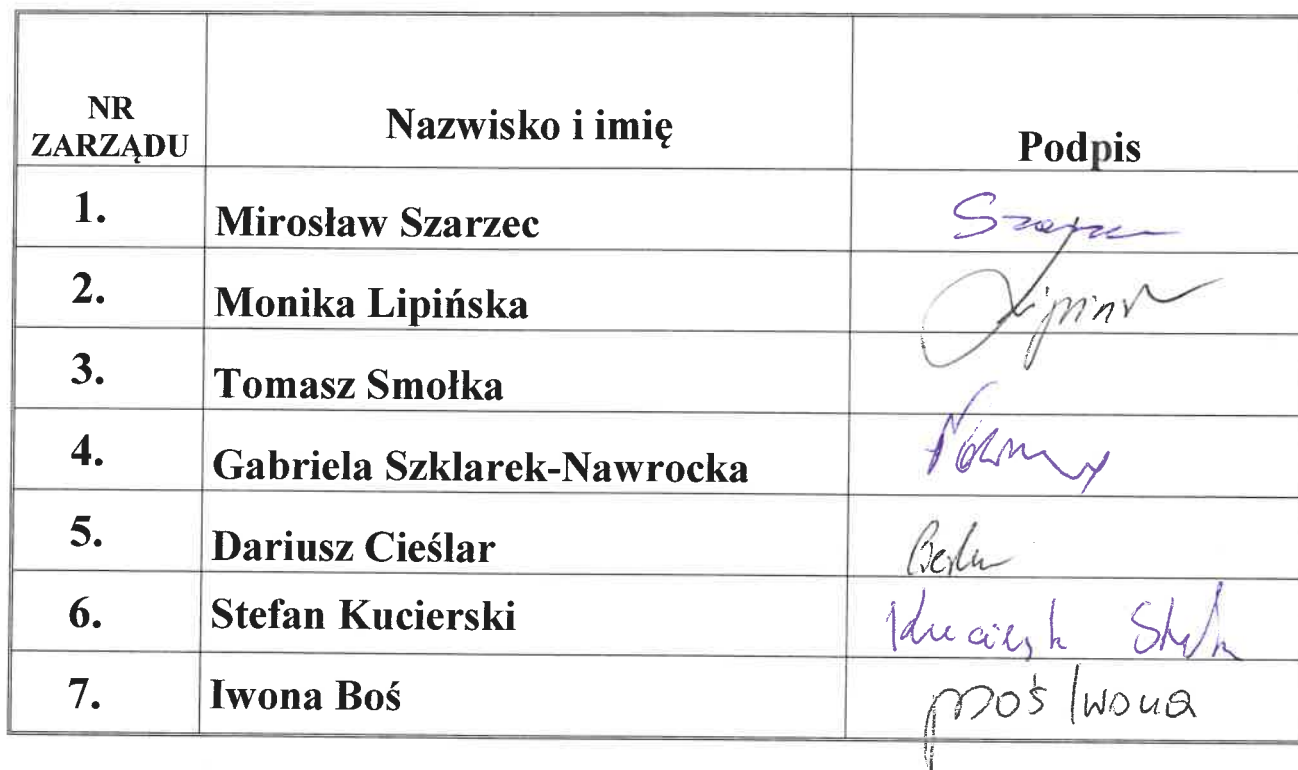 NR
ZARZĄDU
Nazwisko i imię
Podpis
1.
Mirosław Szarzec
2.
Monika Lipińska
3.
Tomasz Smołka
4.
Gabriela Szklarek-Nawrocka
5.
Dariusz Cieślar
6.
Stefan Kucierski
7.
Iwona Boś
Boś Iwona